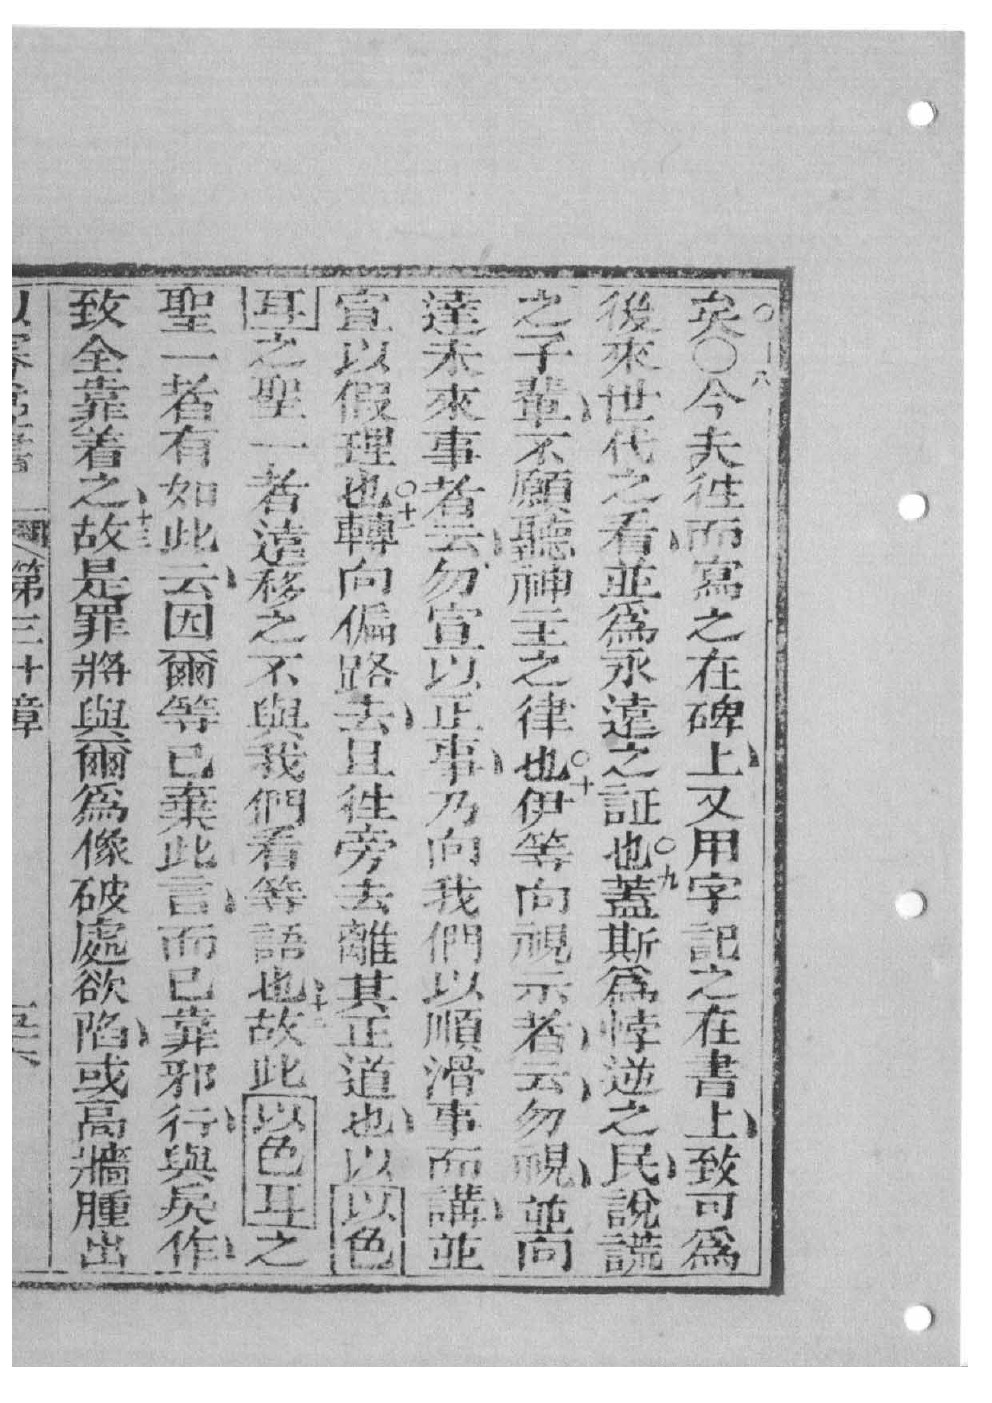 矣〇今夫徃而寫之在碑上又用字記之在書上致可為
〇八
後來世代之看並爲永遠之証也〇九蓋斯爲悖逆之民說謊
之子輩不願聽神主之律也〇十伊等向視示者云勿視並向
達未來事者云勿宣以正事乃向我們以順滑事而講並
宣以假理也〇十一轉向偏路去且徃旁去離其正道也以以色
耳之聖一者遠移之不與我們看等語也十二故此以色耳之
聖一者有如此云因爾等已棄此言而已靠邪行與戾作
致全靠着之十三故是罪將與爾爲像破處欲陷或高牆腫出
第三十章